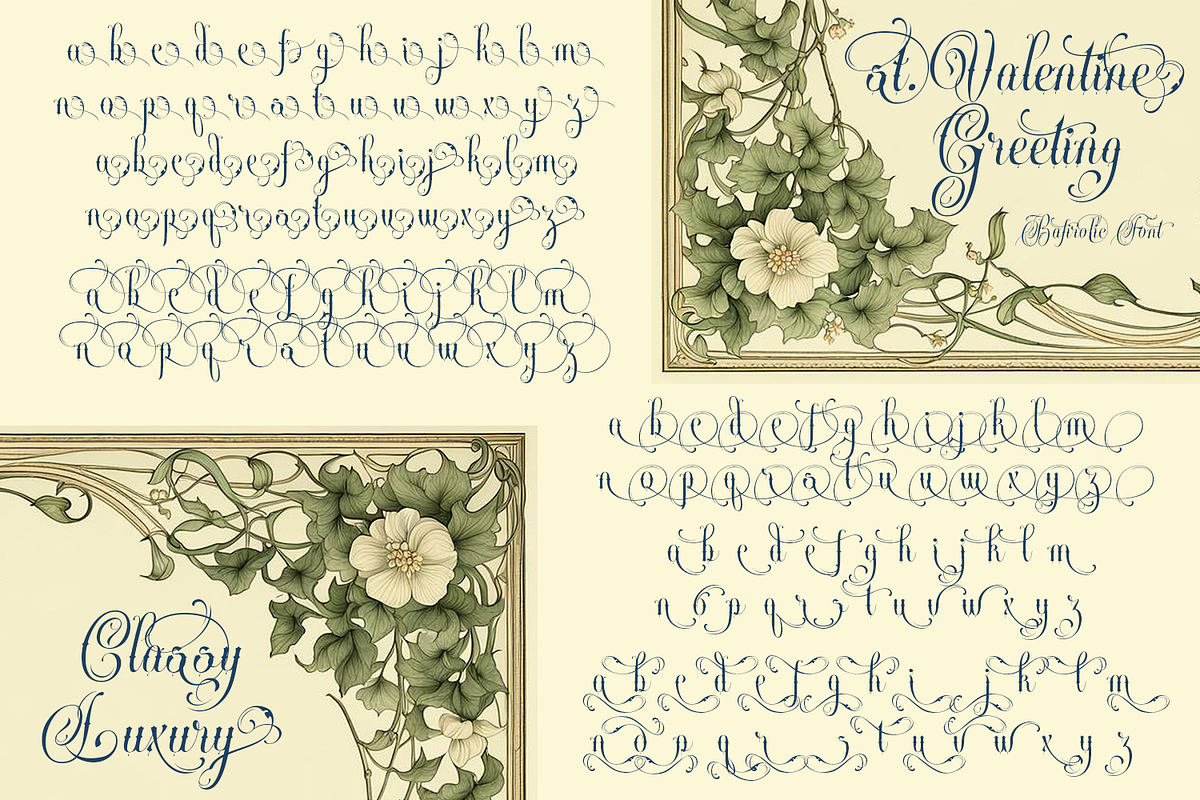 a b c d e f g h i j k l m
n o p q r s t u v w x y z
a b c d e f g h i j k l m
n o p q r s t u v w x y z
a b c d e f g h i j k l m
n o p q r s t u v w x y z
st. Valentine
Greeting
Bafirolic Font
a b c d e f g h i j k l m
n o p q r s t u v w x y z
a b c d e f g h i j k l m
n o p q r s t u v w x y z
a b c d e f g h i j k l m
n o p q r s t u v w x y z
Classy
Luxury